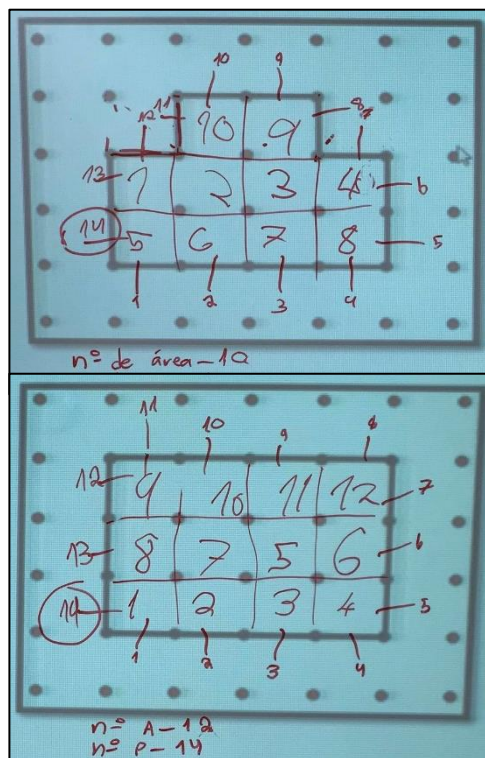 10 9
11 10 9 8 7
12
13 1 2 3 4 6
14 5 6 7 8 5
1 2 3 4
nº de área – 10
11 10 9 8
12 9 10 11 12 7
13 8 7 5 6 6
14 1 2 3 4 5
1 2 3 4
nº A – 12
nº P – 14